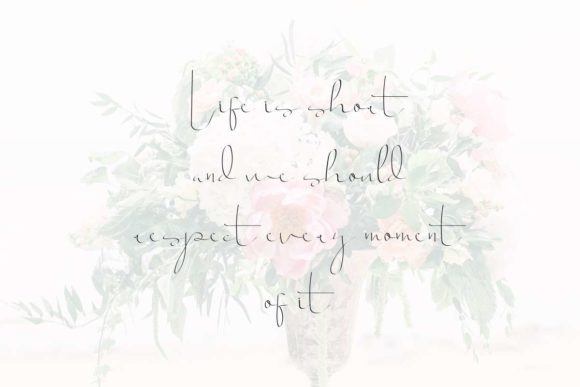 Life is short
and we should
respect every moment
of it